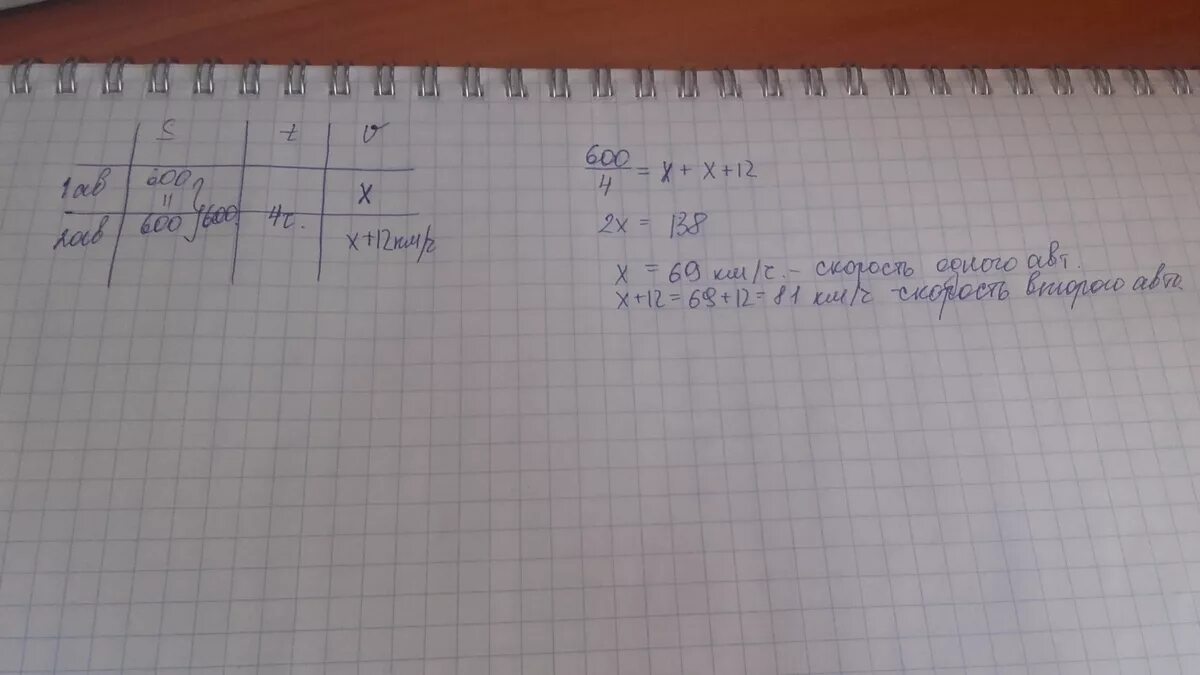 S t v
1ав 600 x
=
2ав 600 600 4ч. x+12км/ч
600/4 = x + x+12
2x = 138
x = 69 км/ч. - скорость одного авт.
x+12 = 69+12 = 81 км/ч - скорость второго авто.